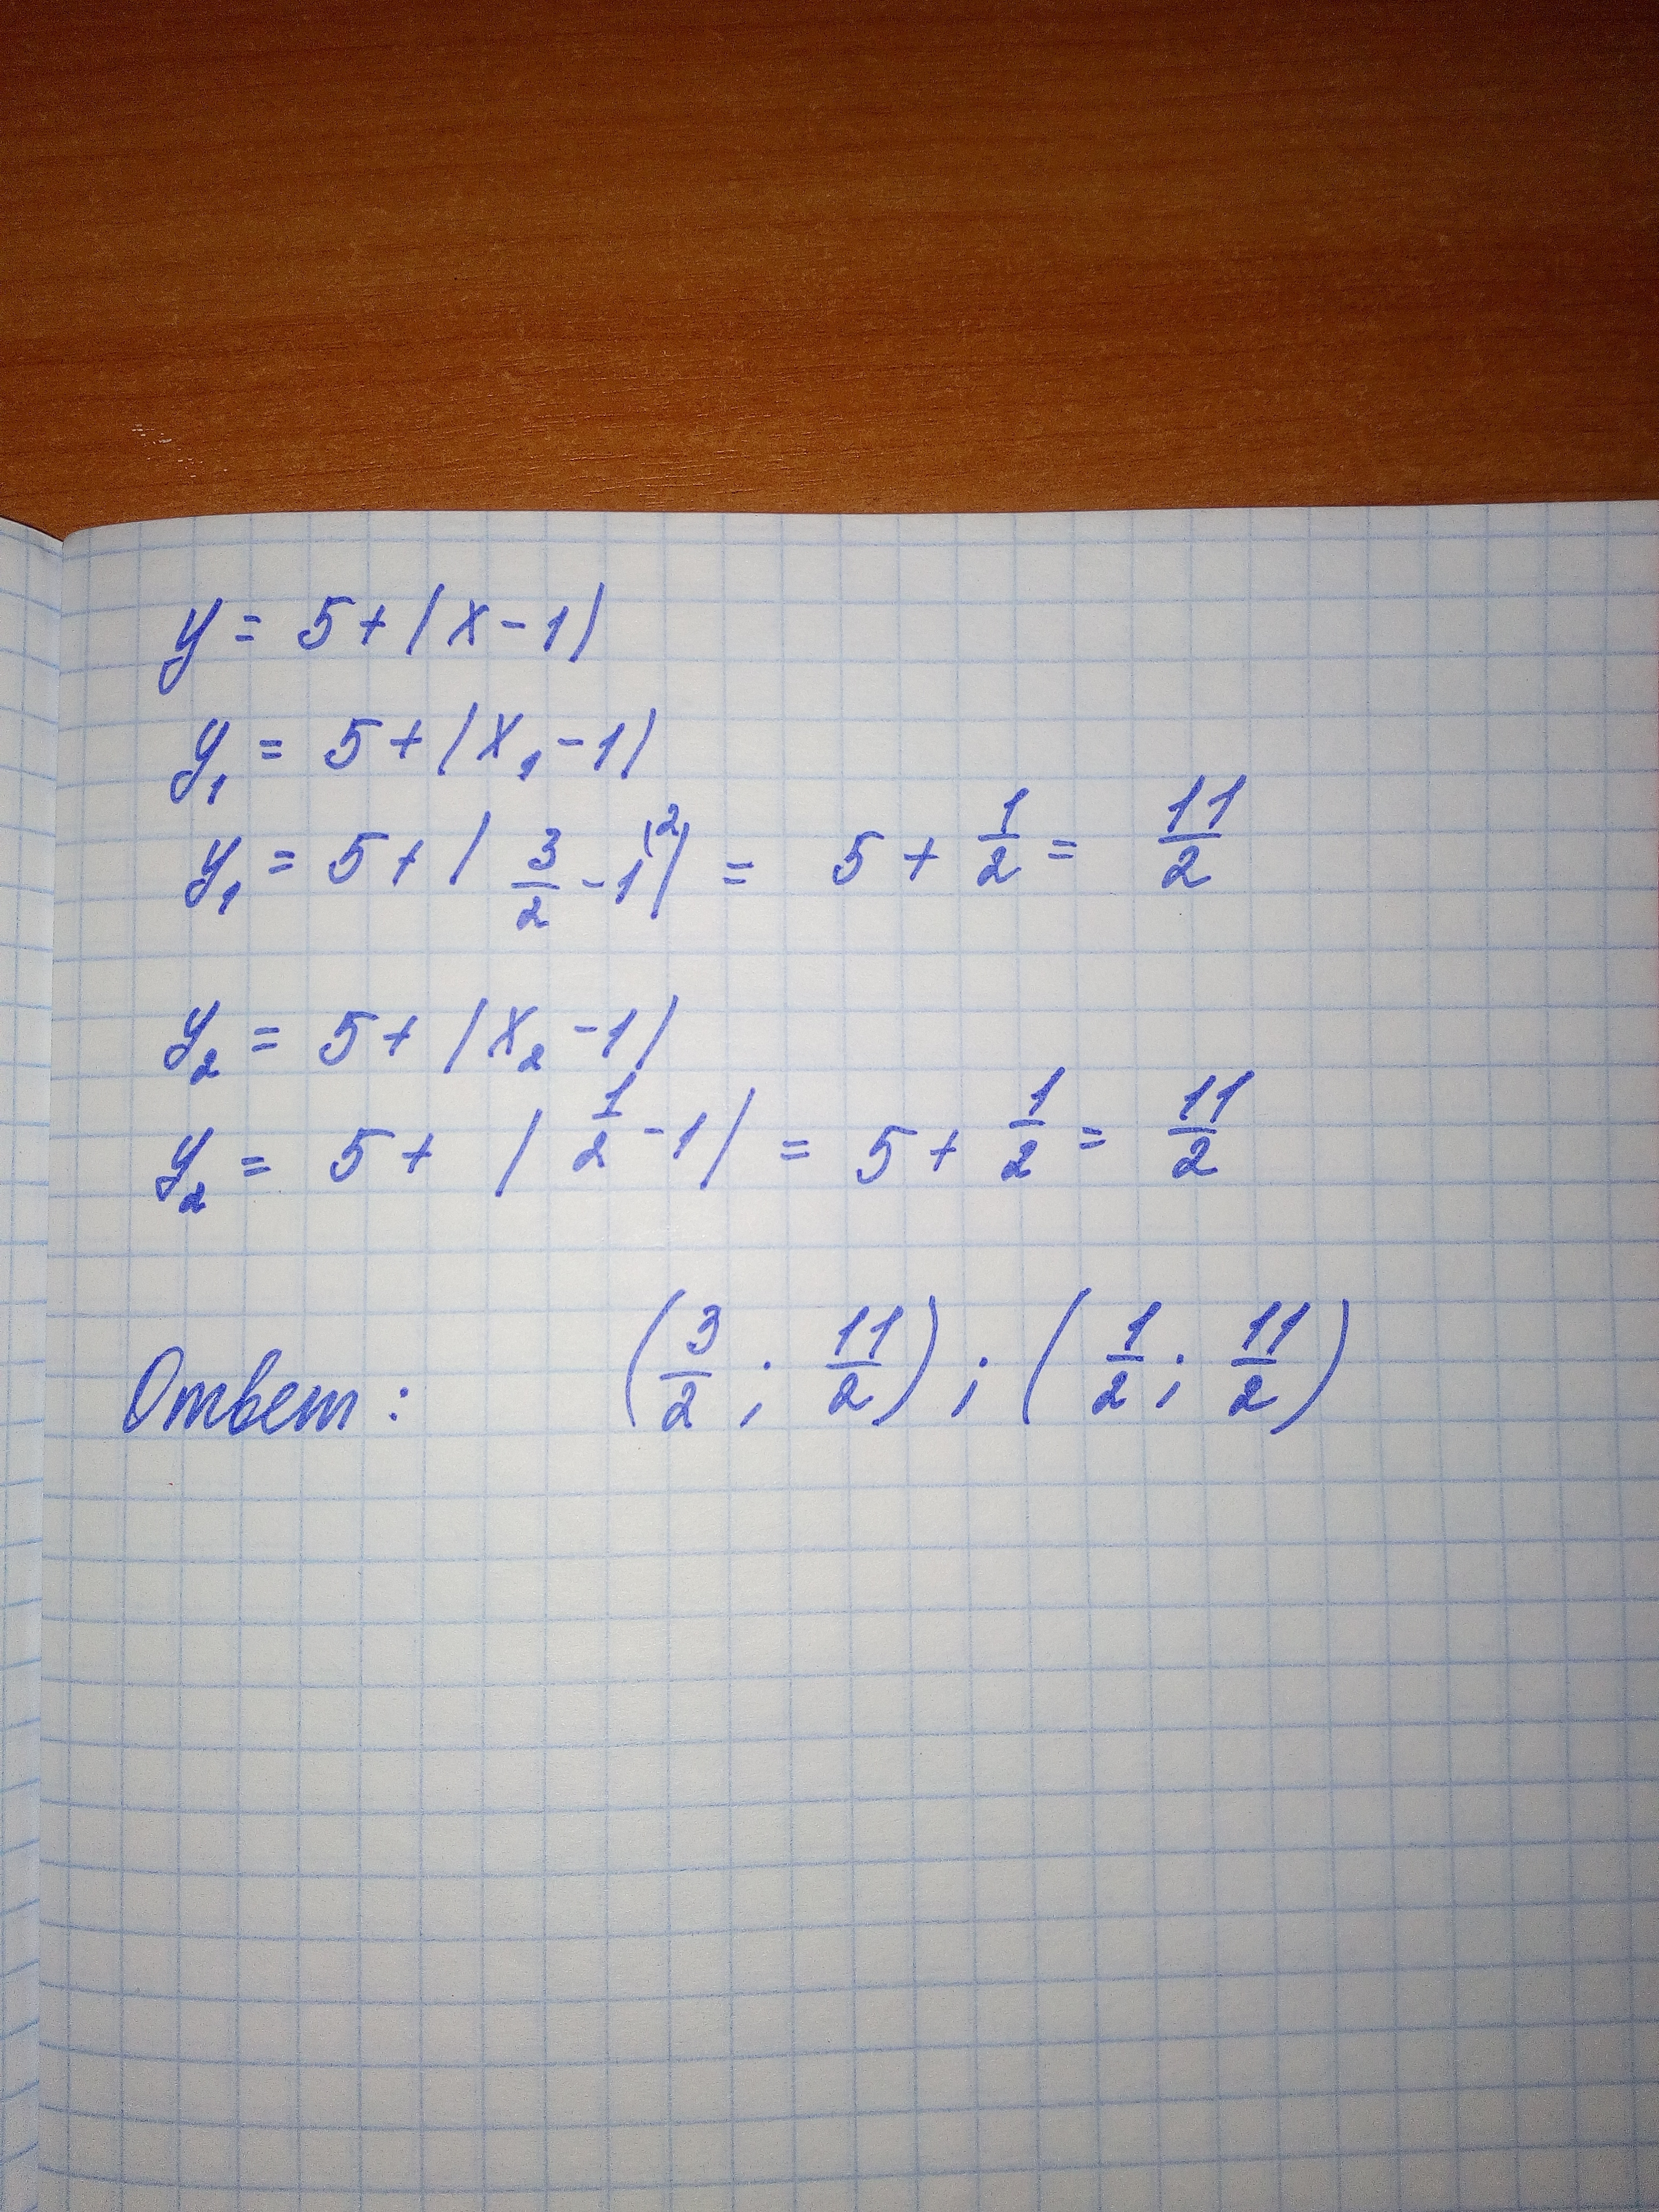 y = 5 + |x - 1|
y₁ = 5 + |x₁ - 1|
y₁ = 5 + | 3/2 - 1⁽²| = 5 + 1/2 = 11/2
y₂ = 5 + |x₂ - 1|
y₂ = 5 + | 1/2 - 1| = 5 + 1/2 = 11/2
Ответ: (3/2 ; 11/2) ; (1/2 ; 11/2)